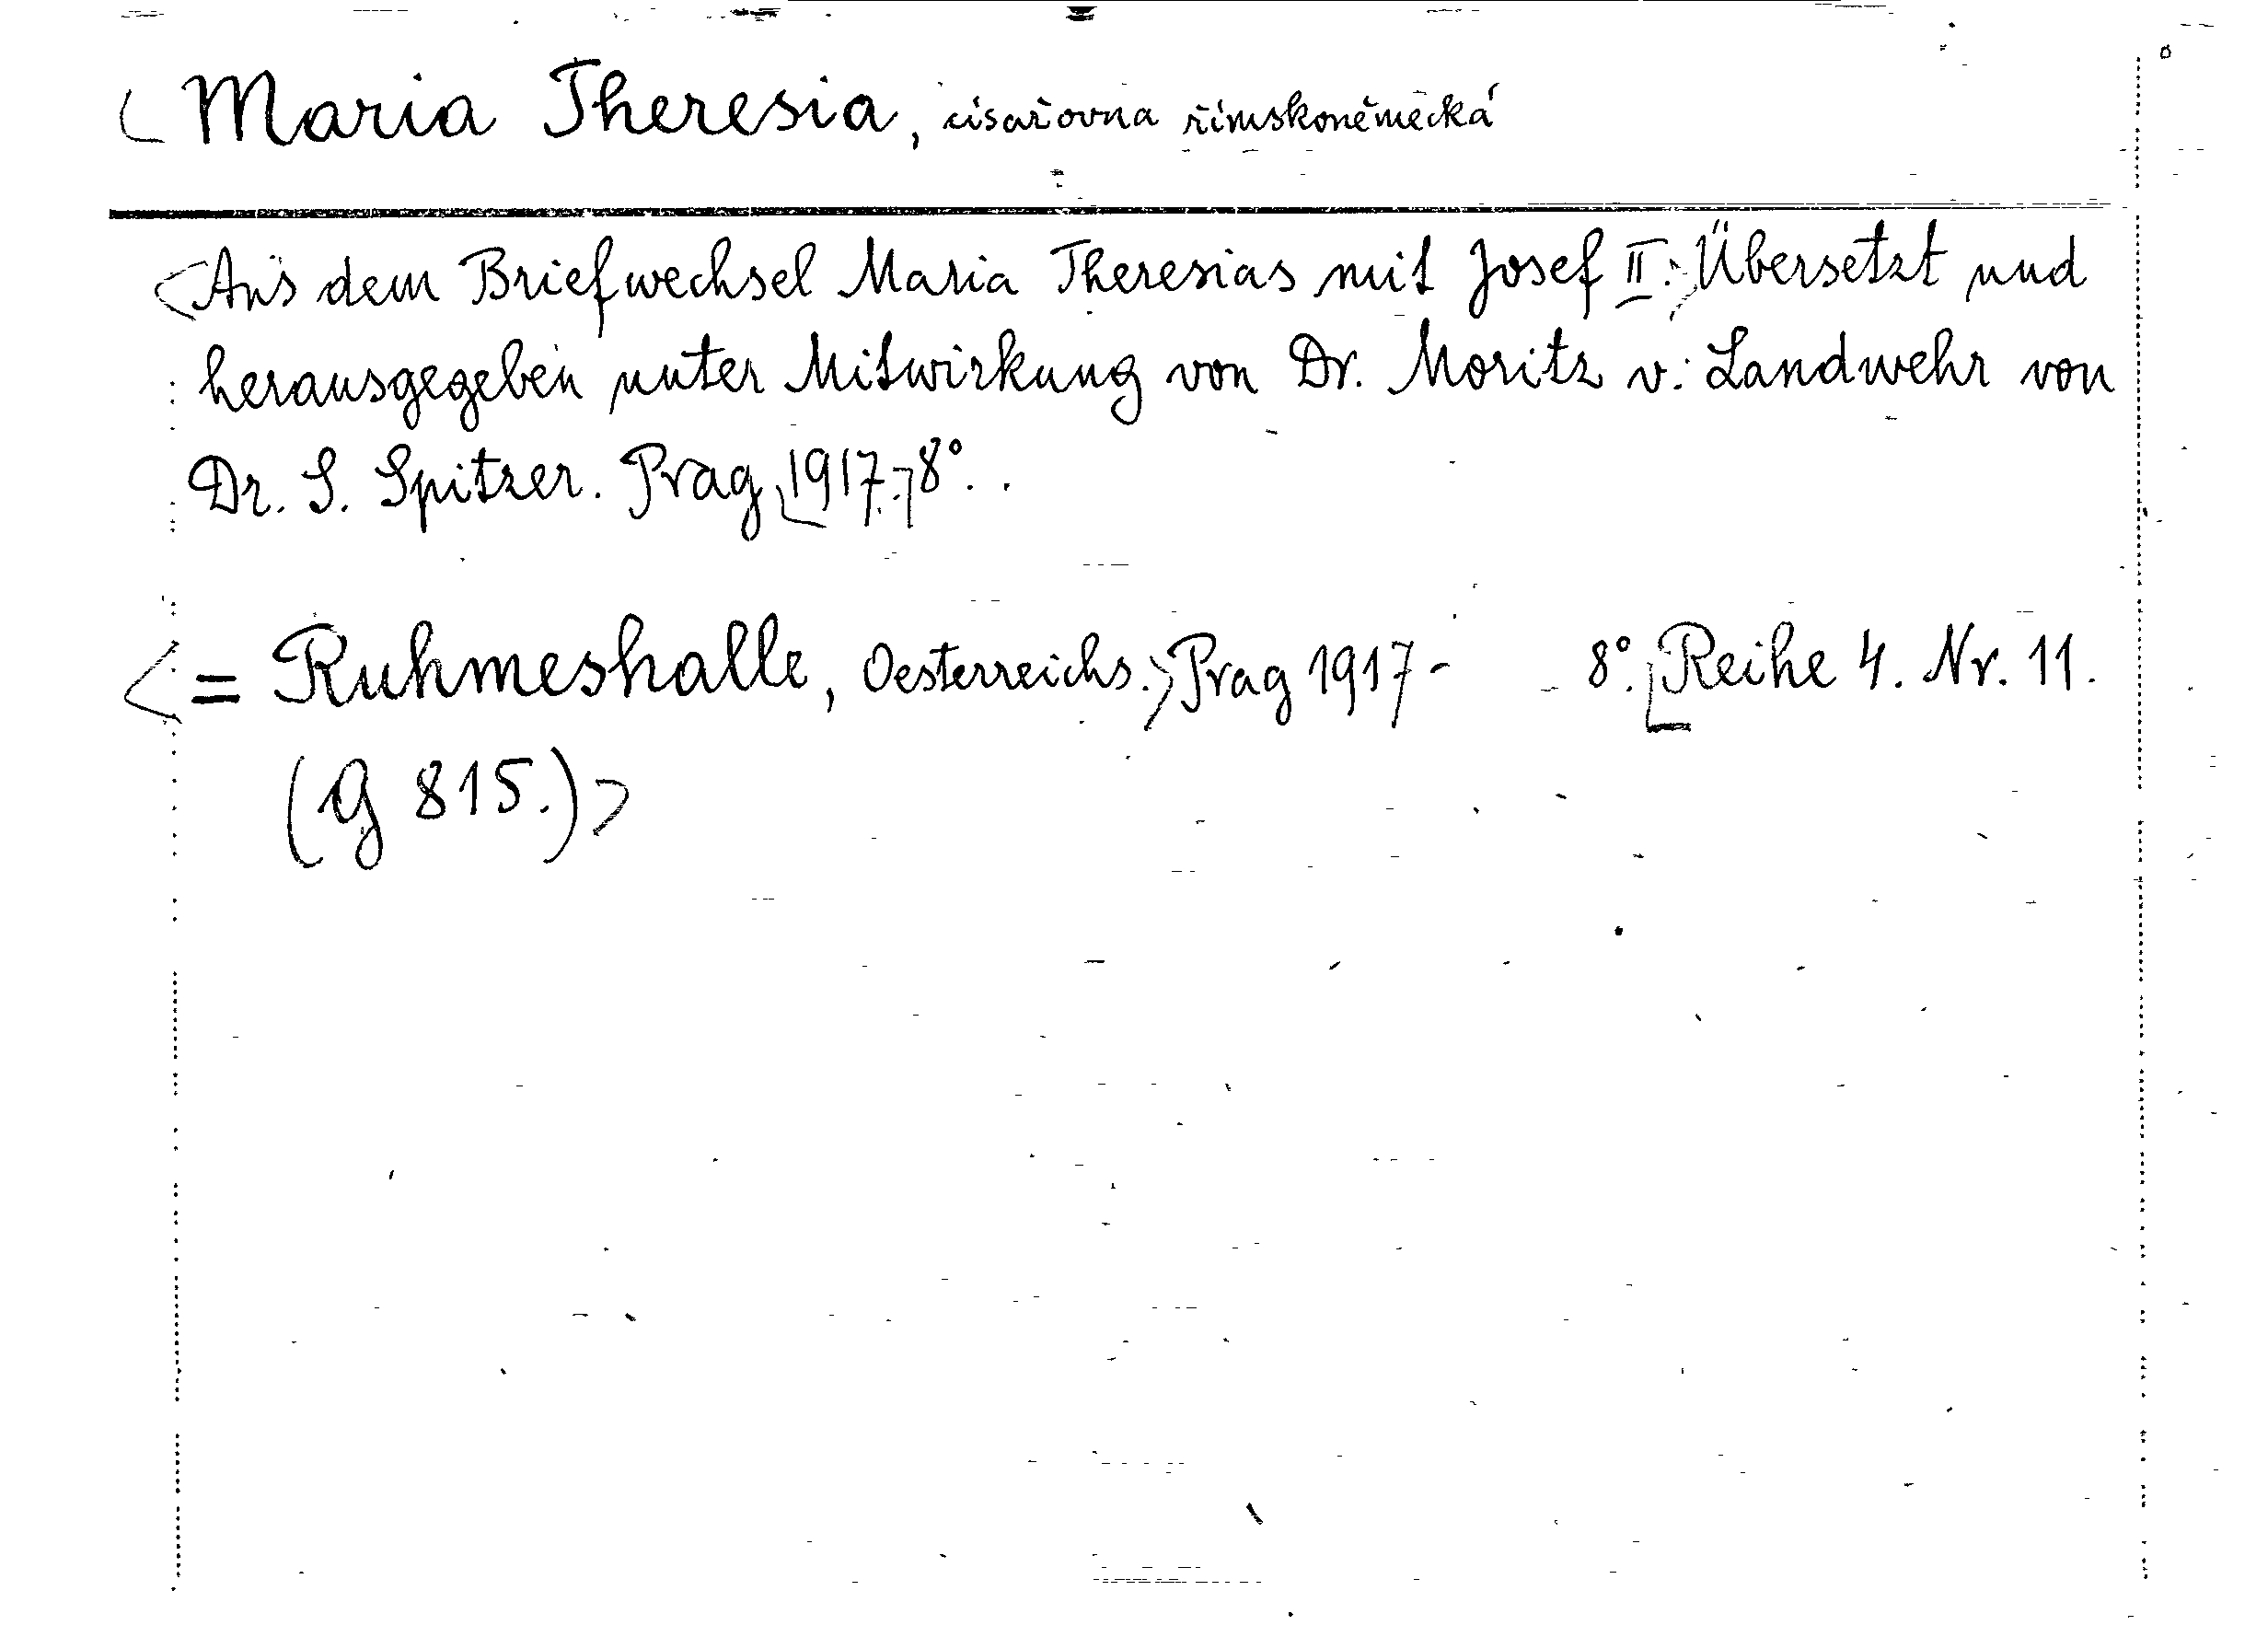 Maria Theresia, císařovna římskoněmecká
Aus dem Briefwechsel Maria Theresias mit Josef II. Übersetzt und
herausgegeben unter Mitwirkung von Dr. Moritz v. Landwehr von
Dr. S. Spitzer. Prag, 1917. 8°.
= Ruhmeshalle, Oesterreichs. Prag 1917- 8°. Reihe 4. Nr. 11.
(G 815.)